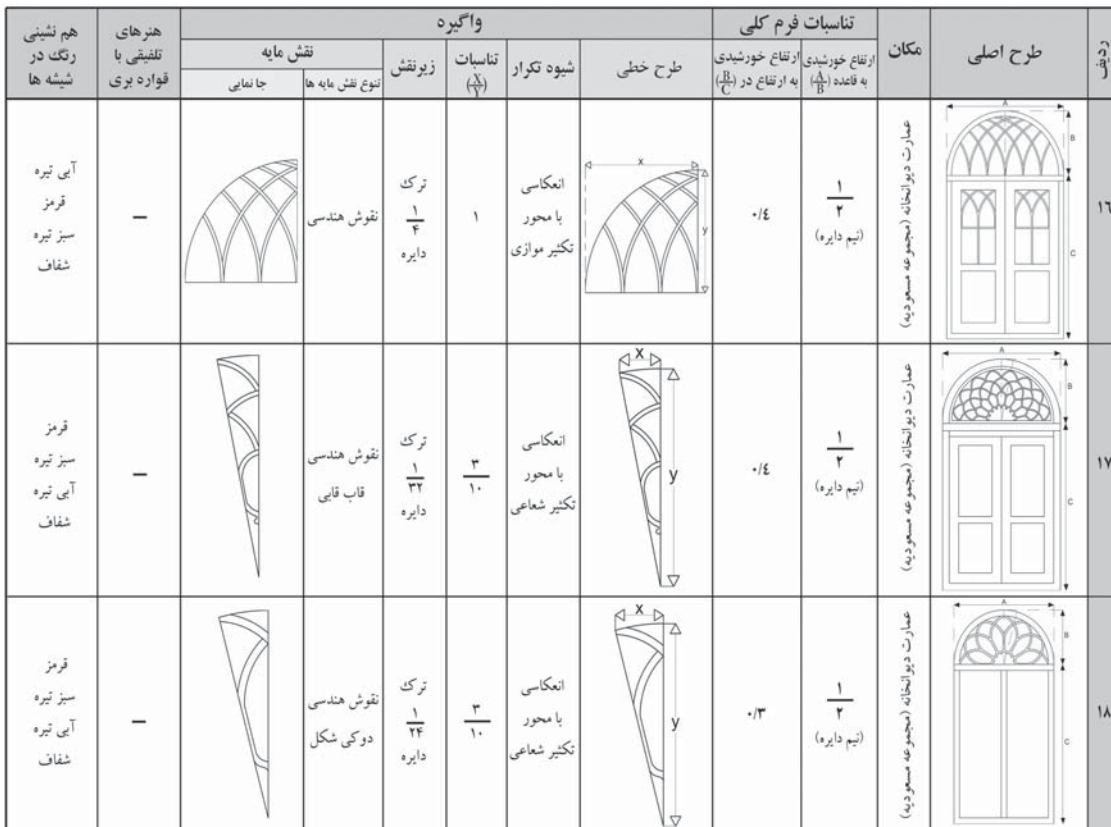 ردیف
طرح اصلی
مکان
تناسبات فرم کلی
ارتفاع خورشیدی به قاعده (A/B)
ارتفاع خورشیدی به ارتفاع در (B/C)
واگیره
طرح خطی
شیوه تکرار
تناسبات (X/Y)
زیرنقش
نقش مایه
تنوع نقش مایه ها
جا نمایی
هنرهای تلفیقی با قواره بری
هم نشینی رنگ در شیشه ها
۱۶
A
B
C
عمارت دیوانخانه (مجموعه مسعودیه)
۱/۲
(نیم دایره)
۰/٤
x
y
انعکاسی
با محور
تکثیر موازی
۱
ترک
۱/۴
دایره
نقوش هندسی
–
آبی تیره
قرمز
سبز تیره
شفاف
۱۷
A
B
C
عمارت دیوانخانه (مجموعه مسعودیه)
۱/۲
(نیم دایره)
۰/٤
X
y
انعکاسی
با محور
تکثیر شعاعی
۳/۱۰
ترک
۱/۳۲
دایره
نقوش هندسی
قاب قابی
–
قرمز
سبز تیره
آبی تیره
شفاف
۱۸
A
B
C
عمارت دیوانخانه (مجموعه مسعودیه)
۱/۲
(نیم دایره)
۰/۳
X
y
انعکاسی
با محور
تکثیر شعاعی
۳/۱۰
ترک
۱/۲۴
دایره
نقوش هندسی
دوکی شکل
–
قرمز
سبز تیره
آبی تیره
شفاف